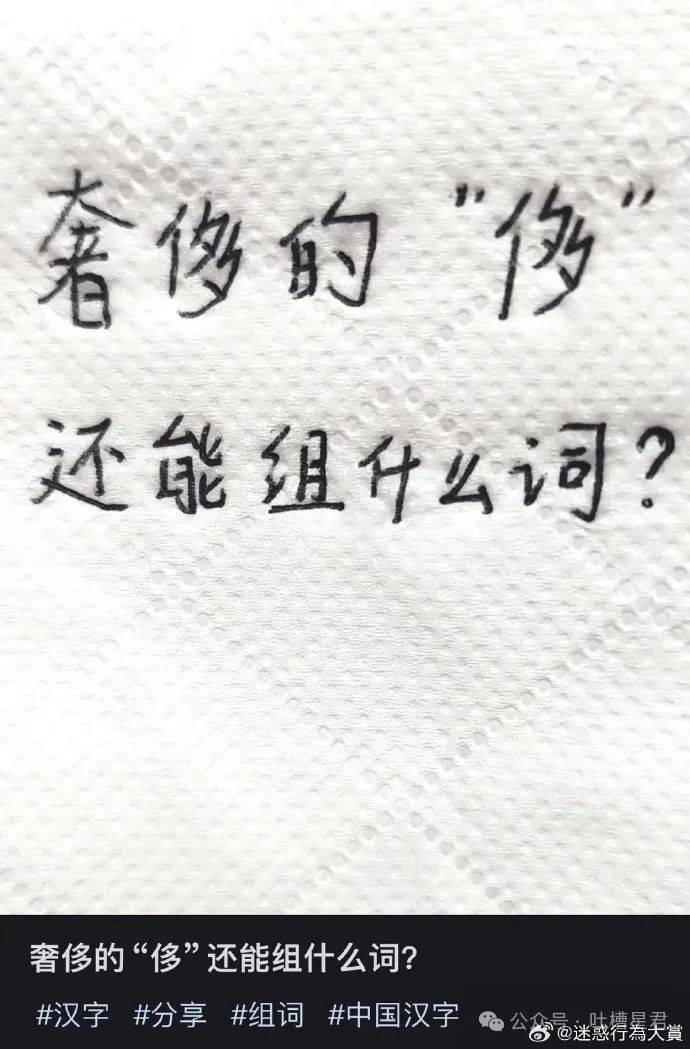 奢侈的“侈”
还能组什么词？
奢侈的“侈”还能组什么词?
#汉字 #分享 #组词 #中国汉字
公众号·吐槽星君
@迷惑行為大賞